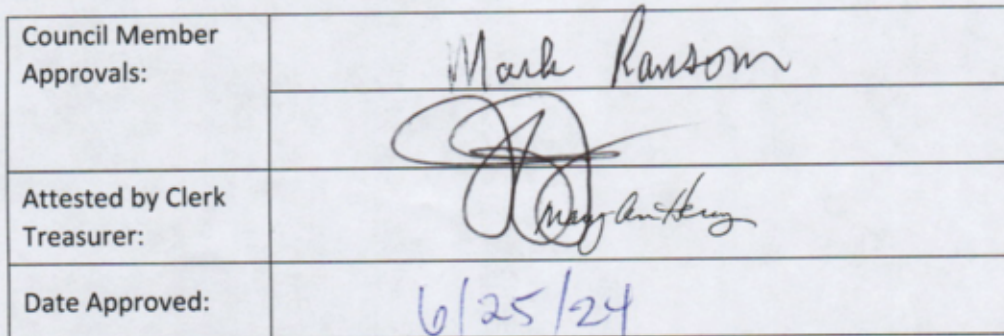 Council Member
Approvals:
Mark Ransom
Attested by Clerk
Treasurer:
Mary Ann
Date Approved:
6/25/24